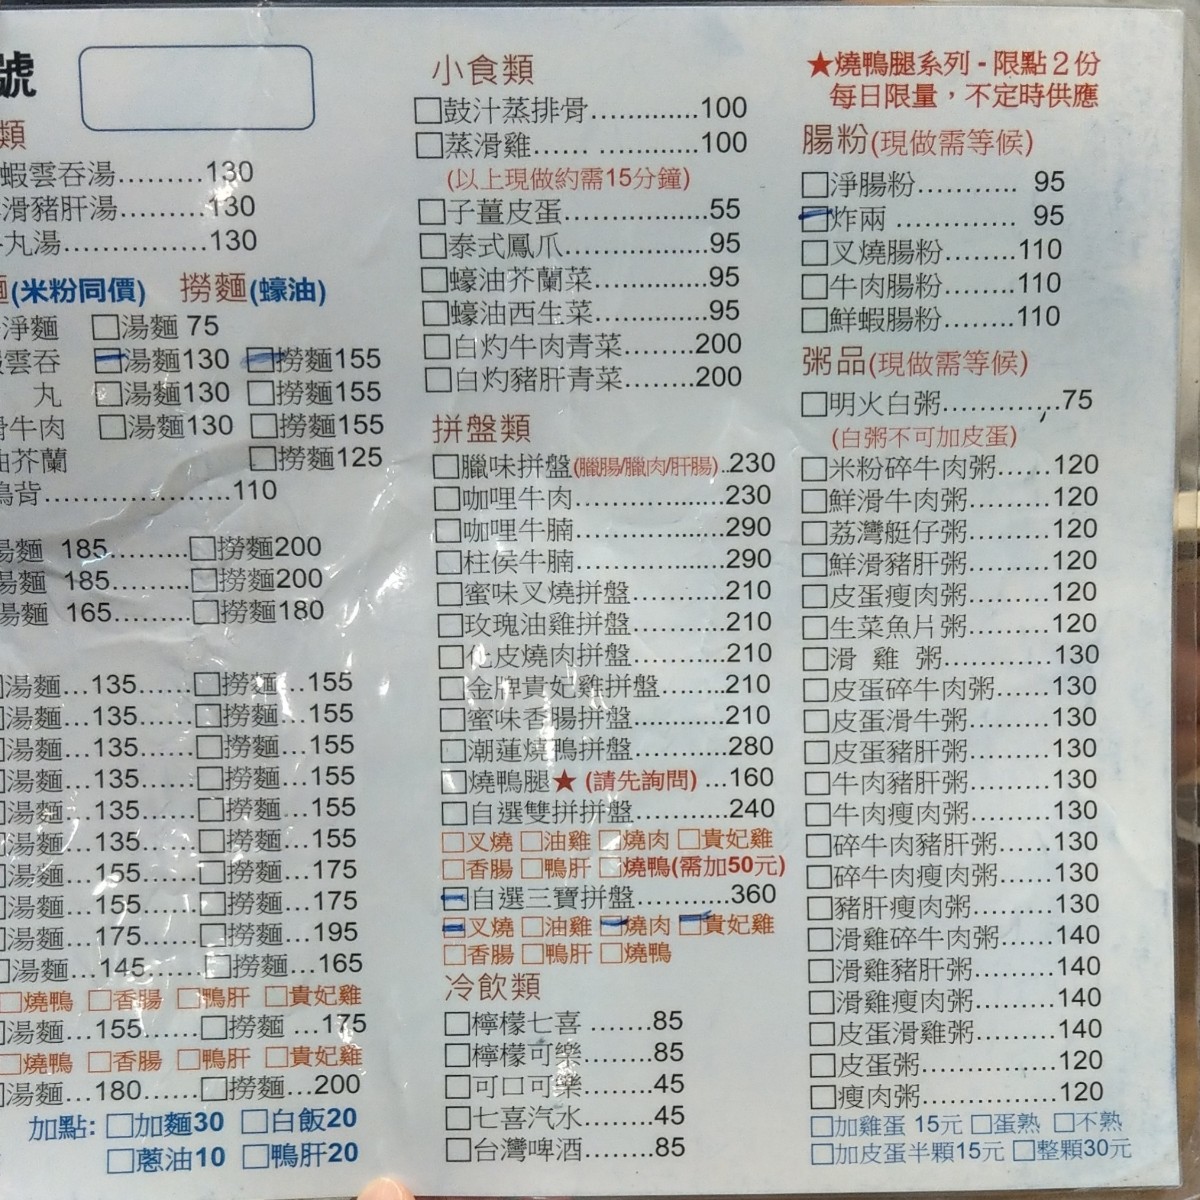 號
類
蝦雲吞湯.........130
滑豬肝湯.........130
丸湯................130
麵(米粉同價) 撈麵(蠔油)
淨麵 □湯麵 75
雲吞 □湯麵130 □撈麵155
丸 □湯麵130 □撈麵155
滑牛肉 □湯麵130 □撈麵155
油芥蘭 □撈麵125
鴨背....................110
湯麵 185.........□撈麵200
湯麵 185.........□撈麵200
湯麵 165.........□撈麵180
□湯麵...135......□撈麵...155
□湯麵...135......□撈麵...155
□湯麵...135......□撈麵...155
□湯麵...135......□撈麵...155
□湯麵...135......□撈麵...155
□湯麵...135......□撈麵...155
□湯麵...155......□撈麵...175
□湯麵...155......□撈麵...175
□湯麵...175......□撈麵...195
□湯麵...145......□撈麵...165
□燒鴨 □香腸 □鴨肝 □貴妃雞
□湯麵...155......□撈麵 ...175
□燒鴨 □香腸 □鴨肝 □貴妃雞
□湯麵...180......□撈麵...200
加點: □加麵30 □白飯20
□蔥油10 □鴨肝20
小食類
□鼓汁蒸排骨.............100
□蒸滑雞...... ............100
(以上現做約需15分鐘)
□子薑皮蛋.................55
□泰式鳳爪.................95
□蠔油芥蘭菜..............95
□蠔油西生菜..............95
□白灼牛肉青菜........200
□白灼豬肝青菜........200
拼盤類
□臘味拼盤(臘腸/臘肉/肝腸)..230
□咖哩牛肉..................230
□咖哩牛腩..................290
□柱侯牛腩..................290
□蜜味叉燒拼盤...........210
□玫瑰油雞拼盤...........210
□化皮燒肉拼盤...........210
□金牌貴妃雞拼盤........210
□蜜味香腸拼盤...........210
□潮蓮燒鴨拼盤...........280
□燒鴨腿★ (請先詢問) ...160
□自選雙拼拼盤...........240
□叉燒 □油雞 □燒肉 □貴妃雞
□香腸 □鴨肝 □燒鴨(需加50元)
□自選三寶拼盤...........360
□叉燒 □油雞 □燒肉 □貴妃雞
□香腸 □鴨肝 □燒鴨
冷飲類
□檸檬七喜 .......85
□檸檬可樂........85
□可口可樂........45
□七喜汽水........45
□台灣啤酒........85
★燒鴨腿系列 - 限點２份
每日限量，不定時供應
腸粉(現做需等候)
□淨腸粉........... 95
□炸兩 ............. 95
□叉燒腸粉........110
□牛肉腸粉........110
□鮮蝦腸粉........110
粥品(現做需等候)
□明火白粥.............75
(白粥不可加皮蛋)
□米粉碎牛肉粥......120
□鮮滑牛肉粥.........120
□荔灣艇仔粥.........120
□鮮滑豬肝粥.........120
□皮蛋瘦肉粥.........120
□生菜魚片粥.........120
□滑 雞 粥............130
□皮蛋碎牛肉粥......130
□皮蛋滑牛粥.........130
□皮蛋豬肝粥.........130
□牛肉豬肝粥.........130
□牛肉瘦肉粥.........130
□碎牛肉豬肝粥......130
□碎牛肉瘦肉粥......130
□豬肝瘦肉粥.........130
□滑雞碎牛肉粥......140
□滑雞豬肝粥.........140
□滑雞瘦肉粥.........140
□皮蛋滑雞粥.........140
□皮蛋粥...............120
□瘦肉粥...............120
□加雞蛋 15元 □蛋熟 □不熟
□加皮蛋半顆15元 □整顆30元